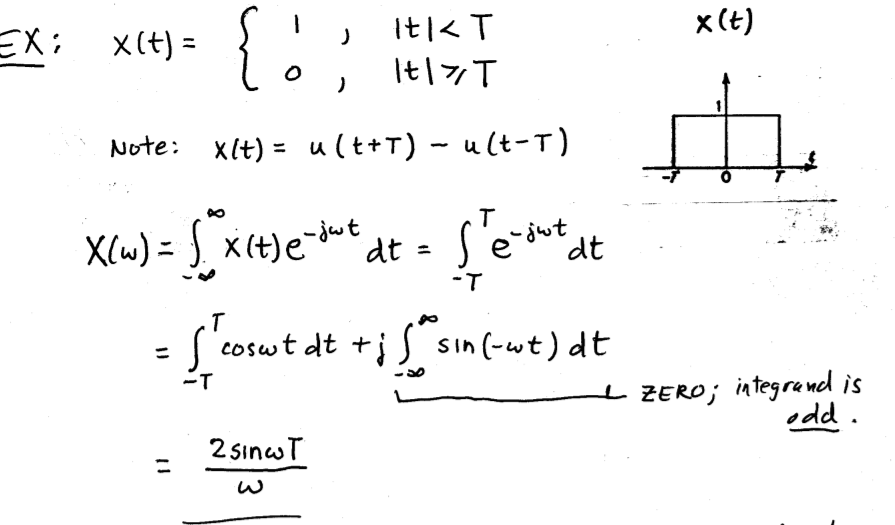 EX: x(t) = { 1 , |t| < T
0 , |t| ≥ T
x(t)
1
-T 0 T t
Note: x(t) = u(t+T) - u(t-T)
X(ω) = ∫_{-∞}^{∞} x(t) e^{-jωt} dt = ∫_{-T}^{T} e^{-jωt} dt
= ∫_{-T}^{T} cosωt dt + j ∫_{-∞}^{∞} sin(-ωt) dt
ZERO; integrand is
odd.
= 2 sinωT / ω